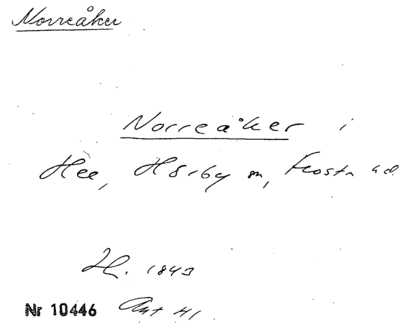 Norreåker
Norreåker i
Hee, Hörby sn, Frosta hd.
H. 1843
Nr 10446 Akt 41